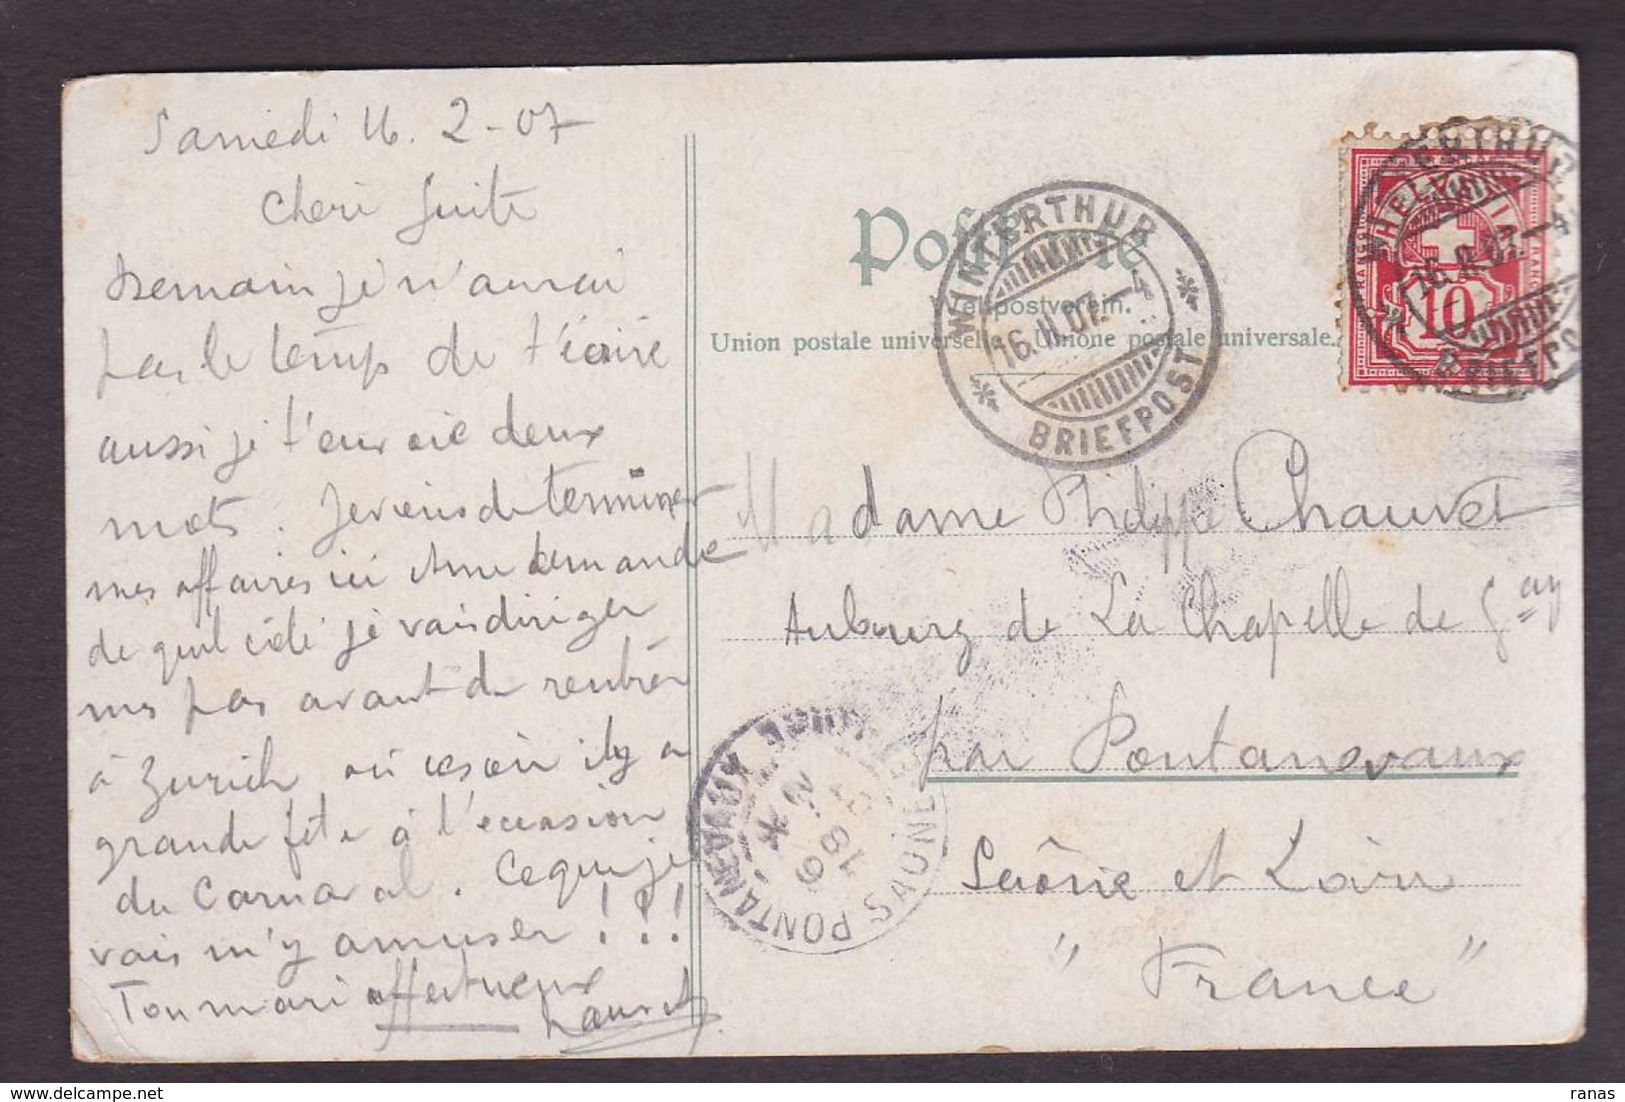 Samedi 16. 2-07
Cheri Suite
Demain je n'aurai
pas le temps de t'écrire
aussi je t'envoie deux
mots. Je viens de terminer
mes affaires ici et me demande
de quel côté je vais diriger
mes pas avant de rentrer
à Zurich où ce soir il y a
grande fête à l'occasion
du Carnaval. Ce que je
vais m'y amuser !!!
Ton mari affectueux
Postkarte
Weltpostverein.
Union postale universelle. Unione postale universale.
WINTERTHUR
16.II.07.-4
BRIEFPOST
WINTERTHUR
16.II.07.-4
BRIEFPOST
FRANCO
10
HELVETIA
Madame Philippe Chauvet
Aubourg de La Chapelle de G.ay
par Pontanevaux
Saône et Loire
"France"
PONTANEVAUX
SAONE
18
ranas